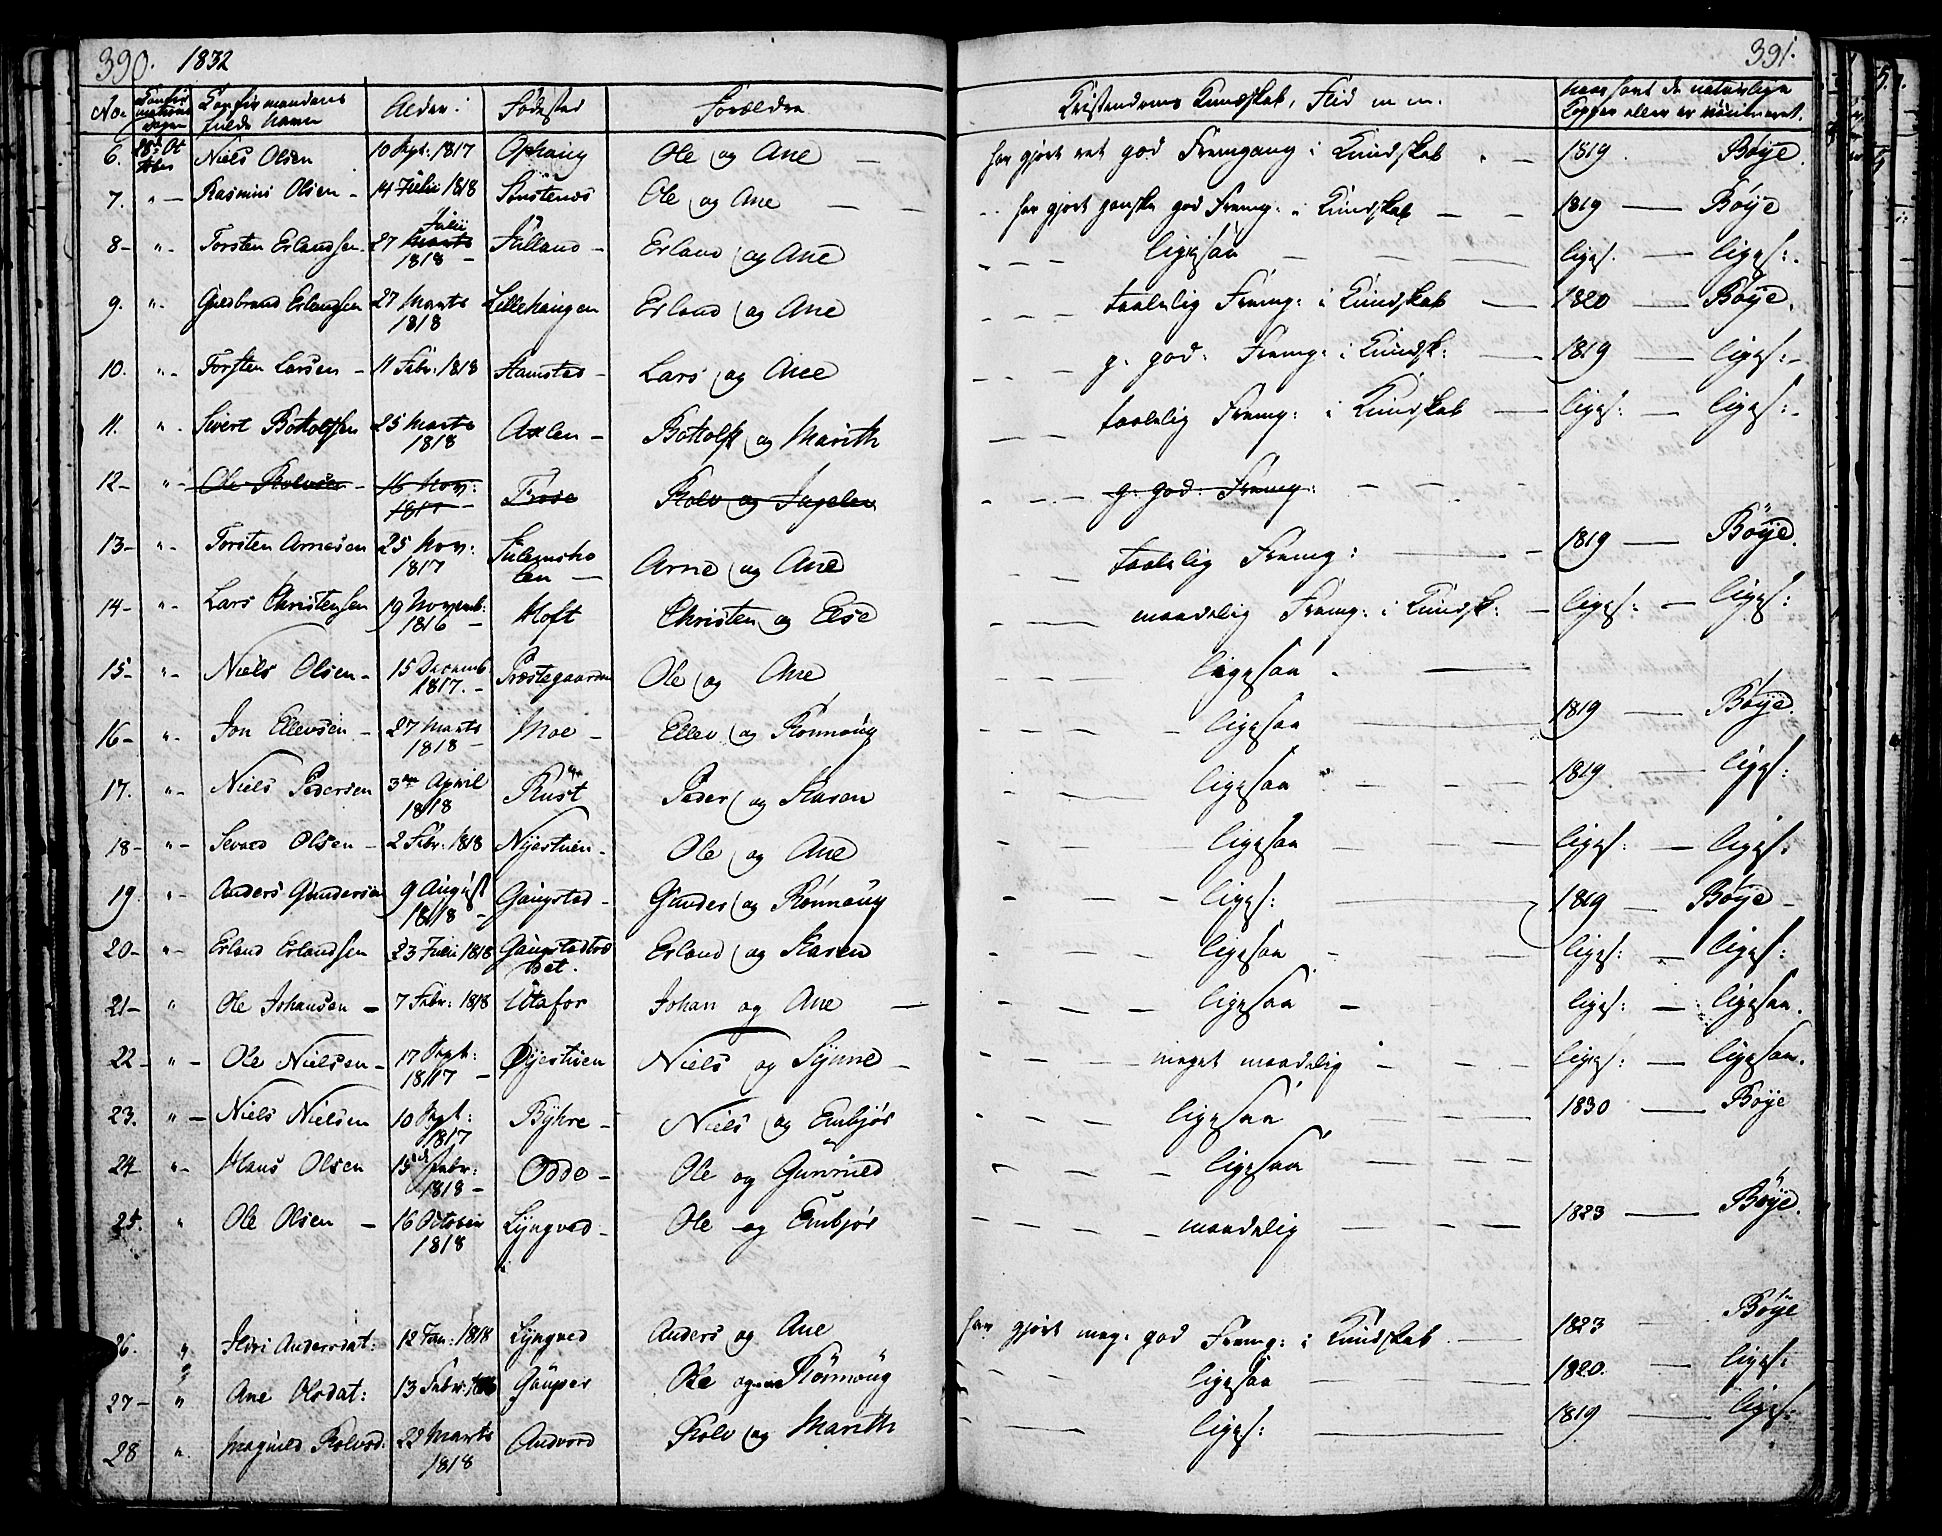 390. 1832
No. Confirmations dagen Confirmandens fulde Navn Alder: Fødested Forældre
6. Niels Olsen 10 Sept: 1817 Ophaug Ole og Ane —
7. " — Rasmus Olsen - 14 Julii 1818 Ole og Ane — —
8 - " - Torsten Erlandsen 27 Marts Julii 1818 - Jutland - Erland og Ane
9. " - Guldbrand Erlandsen 27 Marts 1818 Lillehaugen Erland og Ane
10. " - Torsten Larsen - 11 Febr: 1818 Hamsted - Lars og Ane
11. " - Sivert Botholfsen 25 Marts 1818 Axlen - Botholf og Marith
12 - " - Ole Rolvsen - 16 Nov: 1817 - Trøse Rolv og Ingelev
13 - " - Torsten Arnesen 25 Nov: 1817 Arne og Ane
14 - " - Lars Christensen 19 Novemb: 1816 - Hoft Christen og Else
15 - " - Niels Olsen - 15 Decemb 1817. - Præstegaarden Ole og Ane
16 - " - Jon Ellevsen - 27 Marts 1818 - Moe - Ellev og Rønnoug
17. " - Niels Pedersen 3die April 1818 Rust Peder og Karen
18 - " - Sevard Olsen - 2 Febr: 1818 Nyestuen - Ole og Ane
19. " - Anders Gundersen 9 August 1818 - Gaugstad - Gunder og Rønnoug
20 - " - Erland Erlandsen 23 Julii 1818 Erland og Karen
21 - " Ole Johansen - 7 Febr: 1818 Utafor Johan og Ane —
22 - " - Ole Nielsen - 17 Sept: 1817 - Øyestuen Niels og Synne -
23. " - Niels Nielsen 10 Sept: 1817 Byhre - Niels og Embjør
24 " - Hans Olsen 15 Febr: 1818 - Odde - Ole og Gunnild
25. " Ole Olsen - 16 October 1818 Lyngved - Ole og Embjør
26. " Anders dat: 12 Jan: 1818 Lyngved Anders og Ane
27 - " Ane Olsdat: 13 Febr: Gauper Ole og Rønnoug
28 " Magnild Rolvsd. 22 Marts 1818 Andvord Rolv og Marith
391.
Kristendoms Kundskab, Flid m m. naar havt de naturlige Kopper eller er vaccineret.
har gjort ret god Fremgang i Kundskab - — 1819. Bøye.
- - har gjort ganske god Fremg: i Kundskab — — 1819 — Bøye
- - - ligesaa — — — ligs: — ligs:
- - - taalelig Fremg: i Kundskab — 1820 — Bøye.
- - - g. god: Fremg: i Kundsk: — 1819 — ligs:
- - - taalelig Fremg: i Kundskab — ligs: — ligs:
- - - g. god: Fremg: - - -
- - - taalelig Fremg: — - 1819 — Bøye.
- - - maadelig Fremg: i Kundsk: - ligs: — ligs:
- - - ligesaa - —
- - - - ligesaa — 1819 — Bøye.
- - - ligesaa — — 1819 — ligs:
- - - ligesaa — — ligs: — ligs:
- - - ligs: — 1819 — Bøye -
- - - ligesaa - — ligs: - ligs:
- - - ligesaa - ligs: — ligesaa.
- - - meget maadelig - — — ligs: — ligesaa.
- - - ligesaa — — 1830 — Bøye
- - - ligesaa — — —
- - - maadelig — — — 1823 — Bøye.
har gjort meg: god Fremg: i Kundskab — 1823 — Bøye
- - - ligesaa — — — 1820. — ligs:
- — ligs: — 1819 — ligs: